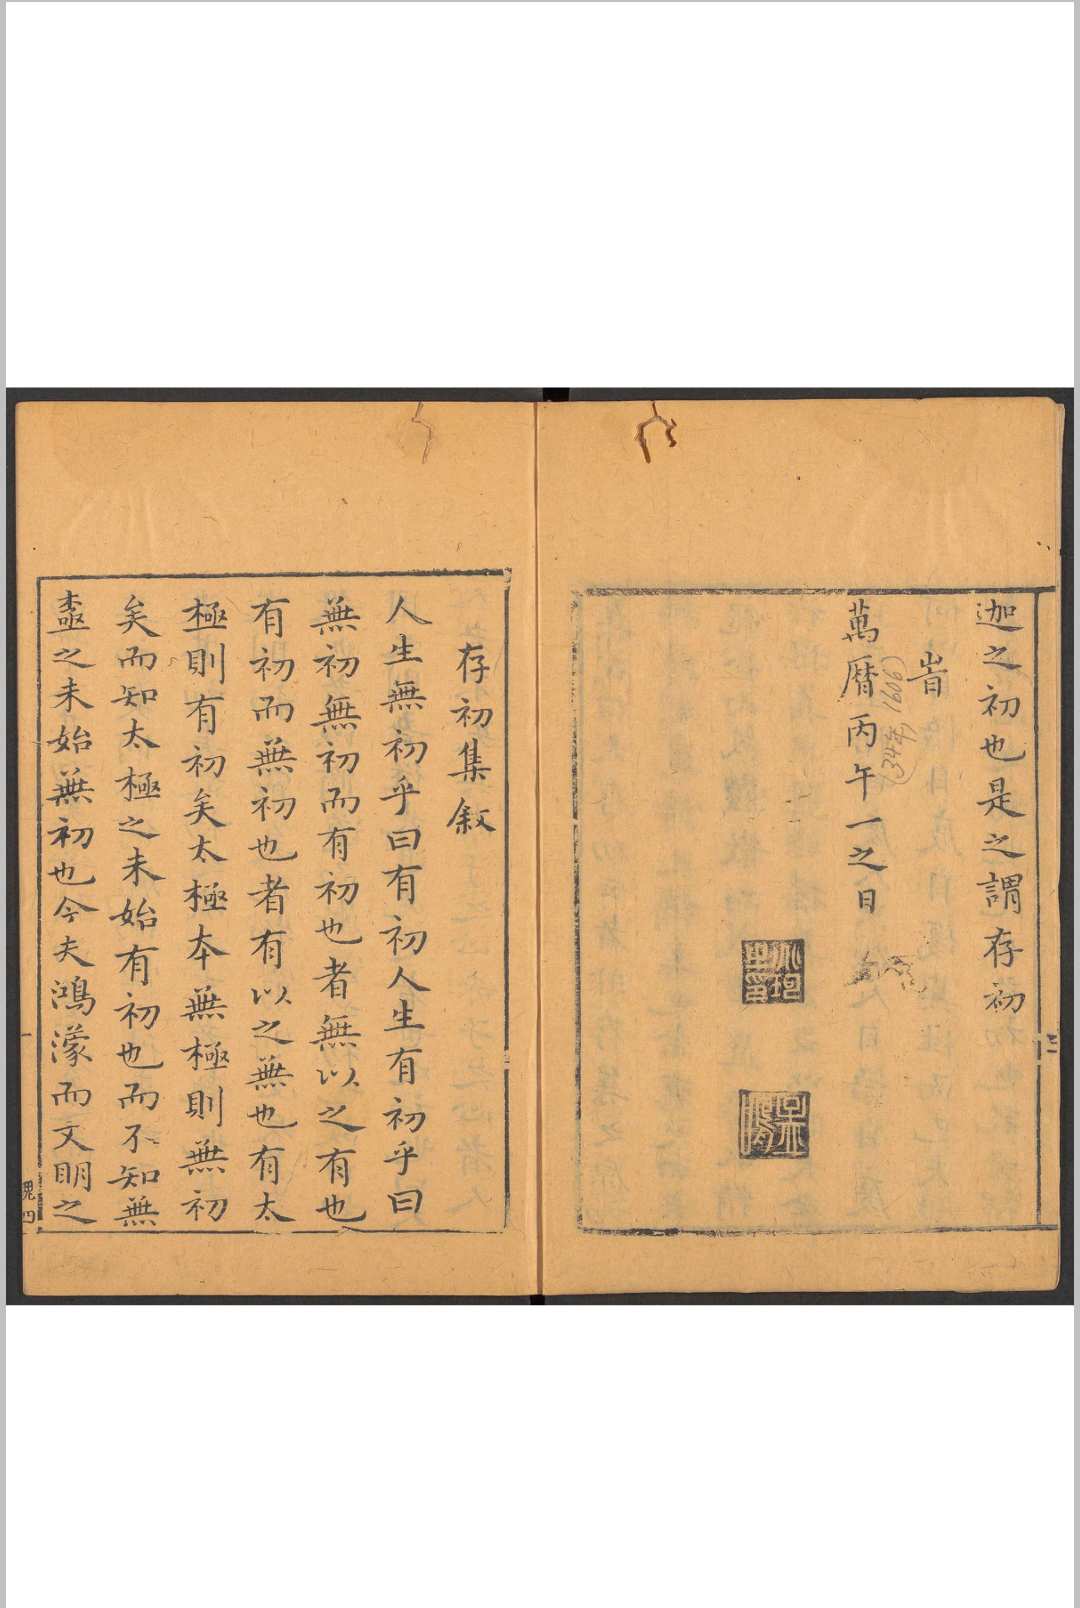 迦之初也是之謂存初
旹
萬曆丙午一之日
(34年, 1606)
存初集敘
人生無初乎曰有初人生有初乎曰
無初無初而有初也者無以之有也
有初而無初也者有以之無也有太
極則有初矣太極本無極則無初
矣而知太極之未始有初也而不知無
極之未始無初也今夫鴻濛而文明之
一
四